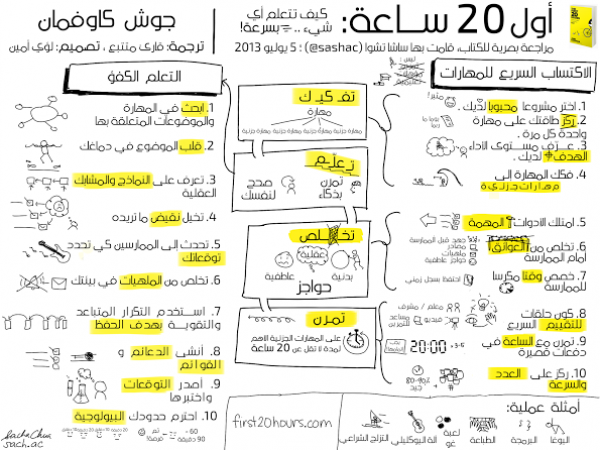 أول 20 ساعة:
كيف تتعلم أي
شيء .. بسرعة!
جوش كاوفمان
مراجعة بصرية للكتاب، قامت بها ساشا تشوا (@sashac) : 5 يوليو 2013
ترجمة: قارئ متتبع ، تصميم: لؤي أمين
الاكتساب السريع للمهارات
1. اختر مشروعا محبوبا لديك .
2. ركز طاقتك على مهارة
واحدة كل مرة .
3. عرّف مستوى الأداء
الهدف لديك .
4. فكك المهارة إلى
مهارات جزئية
5. امتلك الأدوات المهمة
6. تخلص من العوائق
أمام الممارسة
جهد قبل الممارسة
مصادر
ملهيات
حواجز عاطفية
7. خصص وقتا مكرسا
للممارسة
احتفظ بسجل زمني
8. كون حلقات
للتقييم السريع
معلم / مشرف
فيديو
مساعد
للتمرين
9. تمرن مع الساعة في
دفعات قصيرة
20:00
3-5×
10. ركز على العدد
والسرعة
80-90%
جيد
تفكيك
مهارة
مهارة جزئية مهارة جزئية مهارة جزئية مهارة جزئية
تعلم
تمرن
بذكاء
صحح
لنفسك
تخلص
عقلية
بدنية
عاطفية
حواجز
تمرن
على المهارات الجزئية الأهم
لمدة لا تقل عن 20 ساعة
التعلم الكفؤ
1. ابحث في المهارة
والموضوعات المتعلقة بها
2. قلب الموضوع في دماغك
3. تعرف على النماذج والمشابك
العقلية
4. تخيل نقيض ما تريده
5. تحدث إلى الممارسين كي تحدد
توقعاتك
6. تخلص من الملهيات في بيئتك
7. استخدم التكرار المتباعد
والتقوية بهدف الحفظ
8. أنشئ الدعائم و
القوائم
9. أصدر التوقعات
واختبرها
10. احترم حدودك البيولوجية
60 -
90 دقيقة
first20hours.com
أمثلة عملية:
اليوغا
البرمجة
الطباعة
لعبة
go
آلة اليوكليلي
التزلج الشراعي
Sacha Chua
sach.ac